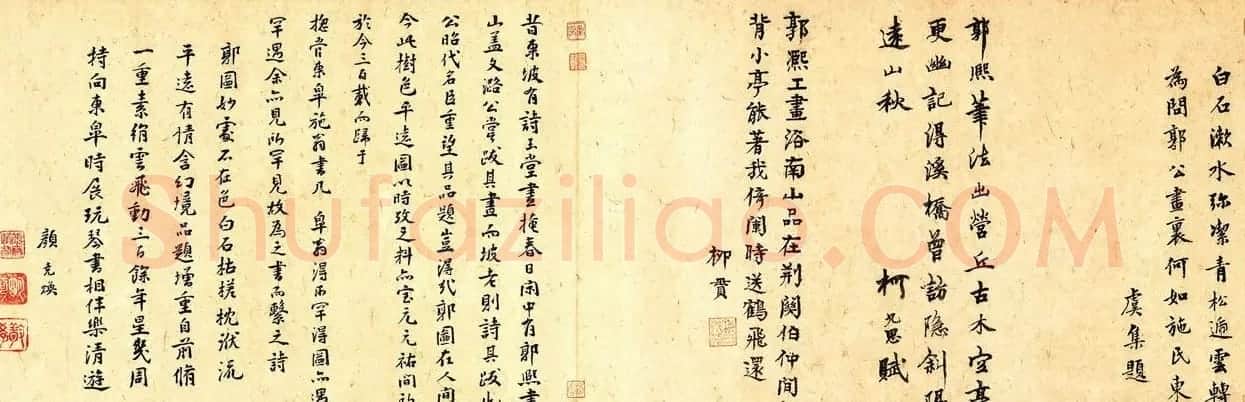 白石漱水弥潔青松遍雲轉
為問郭公畫裏何如施民東
虞集題
郭熙筆法出營丘古木空亭
更幽記得溪橋曾訪隐斜陽
遠山秋 柯九思賦
郭熙工畫洛南山品在荆關伯仲間
背小亭能著我倚闌時送鶴飛還
柳貫
昔東坡有詩玉堂晝掩春日閑中有郭熙畫
山蓋文潞公嘗跋其畫而坡老則詩其跋
公昭代名臣重望其品題豈得郭圖在人間
今此樹色平遠圖以時攷之料亦宝元元祐間
於今三百載而歸于
東皋施翁書几皐翁得所罕得圖亦遇
罕遇余亦見所罕見故為之書而繫之詩
郭圖妙處不在色白石枯槎枕潀流
平遠有情含幻境品題増重自前脩
一重素絹雲飛動三百餘年星幾周
持向東皐時展玩琴書相伴樂清遊
顏堯煥
Shufaziliao.COM